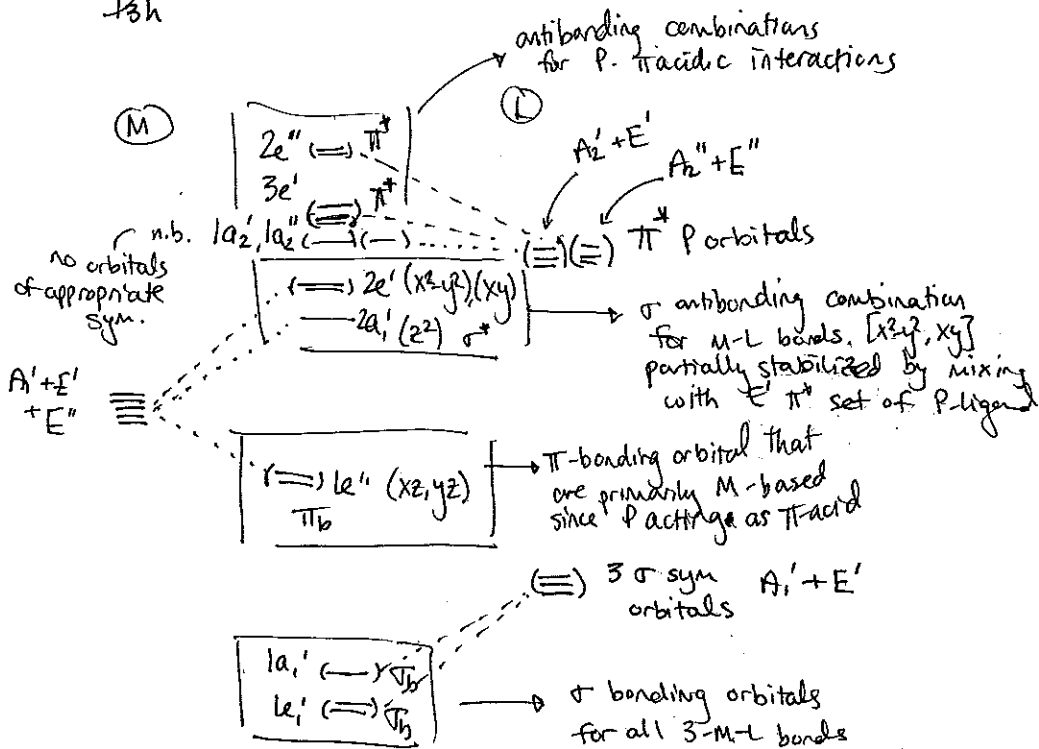 D3h
antibonding combinations
for P. π acidic interactions
M
L
2e'' π*
3e' π*
A2' + E'
A2'' + E''
n.b. 1a2', 1a2''
no orbitals
of appropriate
sym.
π* P orbitals
2e' (x²-y²), (xy)
2a1' (z²) σ*
σ antibonding combination
for M-L bonds. [x²-y², xy]
partially stabilized by mixing
with E' π* set of P-ligand
A1' + E'
+ E''
1e'' (xz, yz)
πb
π-bonding orbital that
are primarily M-based
since P acting as π-acid
3 σ sym A1' + E'
orbitals
1a1' σb
1e1' σb
σ bonding orbitals
for all 3-M-L bonds